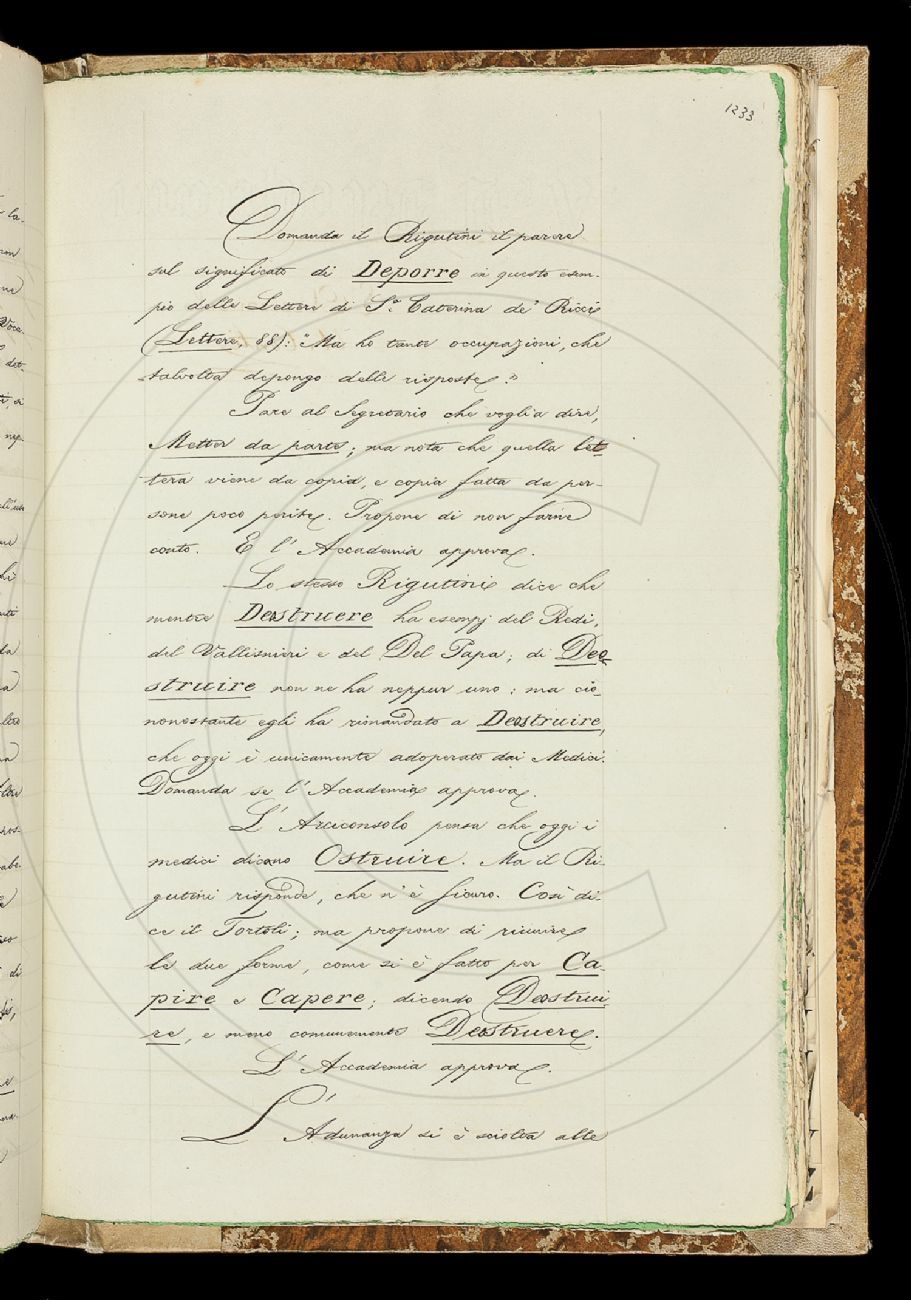 1233
Domanda il Rigutini il parere
sul significato di Deporre in questo esem-
pio delle Lettere di S.a Caterina de' Ricci
(Lettere, 88): "Ma ho tante occupazioni, che
talvolta depongo delle risposte."
Pare al Segretario che voglia dire,
Metter da parte; ma nota che quella let-
tera viene da copia, e copia fatta da per-
sone poco perite. Propone di non farne
conto. E l'Accademia approva.
Lo stesso Rigutini dice che
mentre Deostruere ha esempj del Redi,
del Vallisnieri e del Del Papa; di Deo-
struire non ne ha neppur uno: ma ciò
nonostante egli ha rimandato a Deostruire,
che oggi è unicamente adoperato dai Medici.
Domanda se l'Accademia approva.
L'Arciconsolo pensa che oggi i
medici dicano Ostruire. Ma il Ri-
gutini risponde, che n'è sicuro. Così di-
ce il Tortoli; ma propone di riunire
le due forme, come si è fatto per Ca-
pire e Capere; dicendo Deostrui-
re, e meno comunemente Deostruere.
L'Accademia approva.
L'Adunanza si è sciolta alle